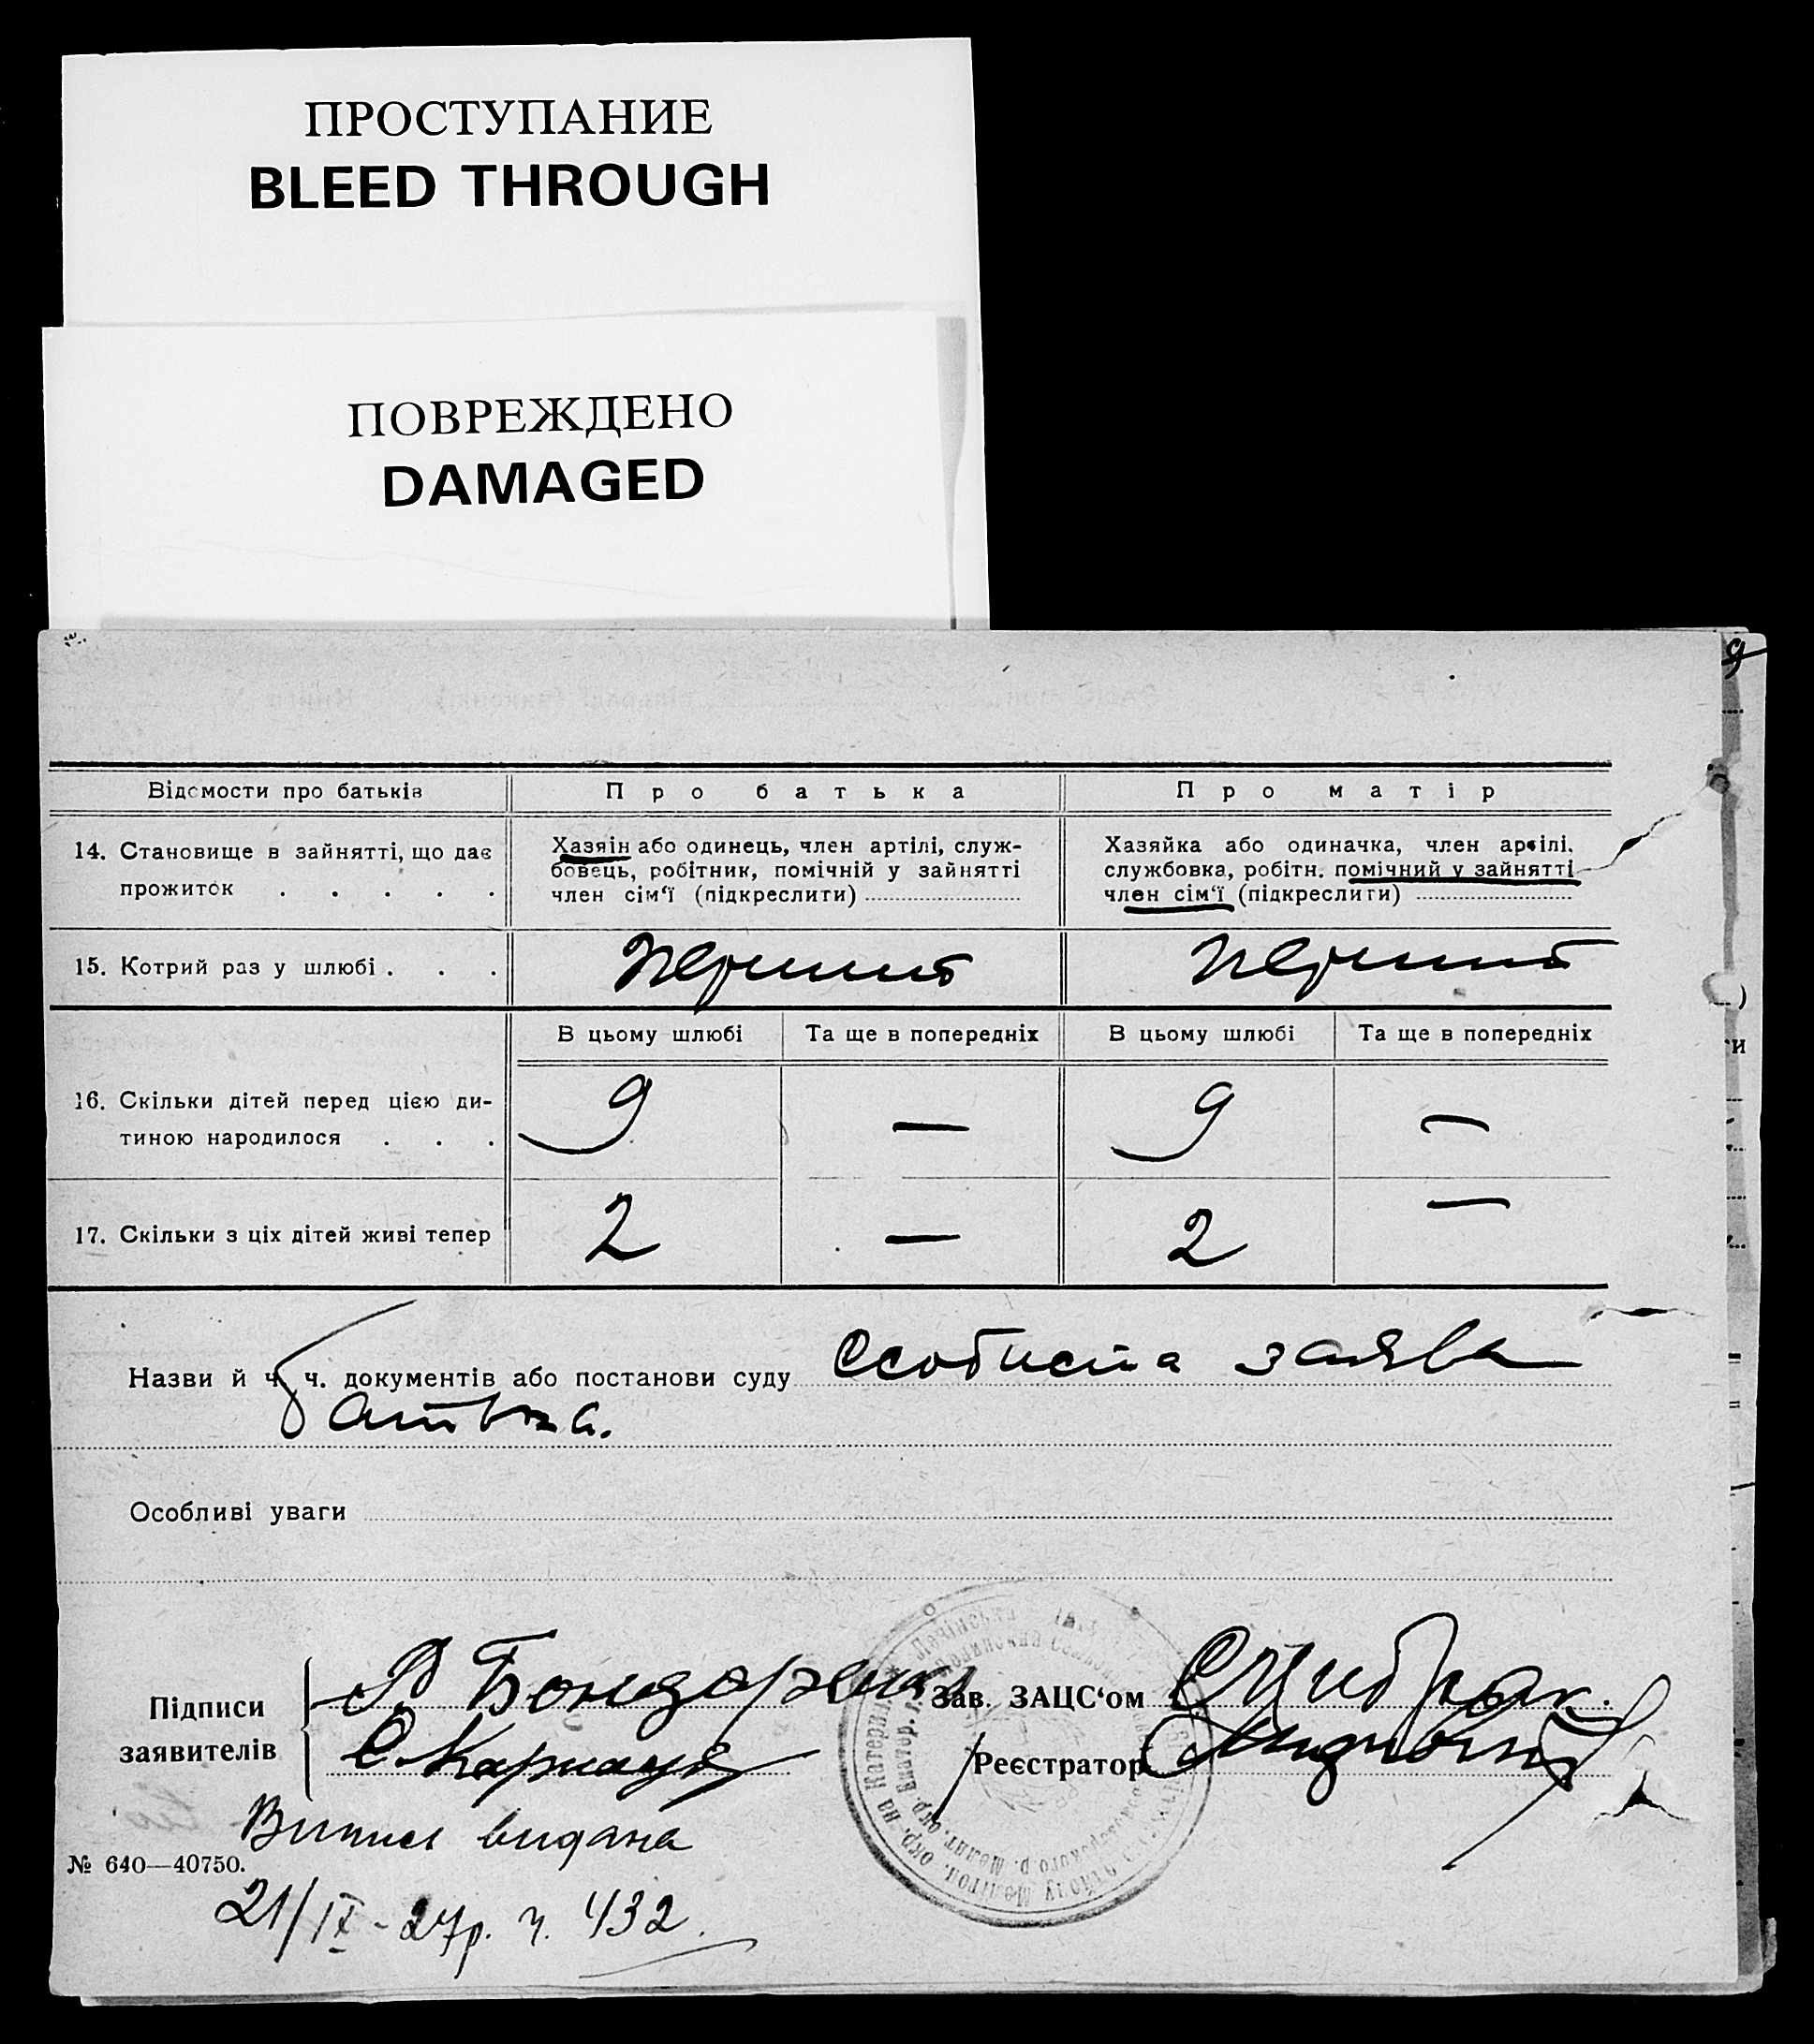 ПРОСТУПАНИЕ
BLEED THROUGH
ПОВРЕЖДЕНО
DAMAGED
9
Відомости про батьків
Про батька
Про матір
14. Становище в зайнятті, що дає
прожиток . . . . .
Хазяін або одинець, член артілі, служ-
бовець, робітник, помічній у зайнятті
член сім'ї (підкреслити)
Хазяйка або одиначка, член артілі,
службовка, робітн. помічний у зайнятті
член сім'ї (підкреслити)
15. Котрий раз у шлюбі . . .
перший
перший
В цьому шлюбі
Та ще в попередніх
В цьому шлюбі
Та ще в попередніх
16. Скільки дітей перед цією ди-
тиною народилося . . .
9 — 9 —
17. Скільки з ціх дітей живі тепер
2 — 2 —
Назви й ч. ч. документів або постанови суду Особиста заява
батька.
Особливі уваги
Підписи
заявителів
Бондаренко
Зав. ЗАЦС'ом
Реєстратор
Випись видана
№ 640—40750.
21/IX - 27р. ч. 432.